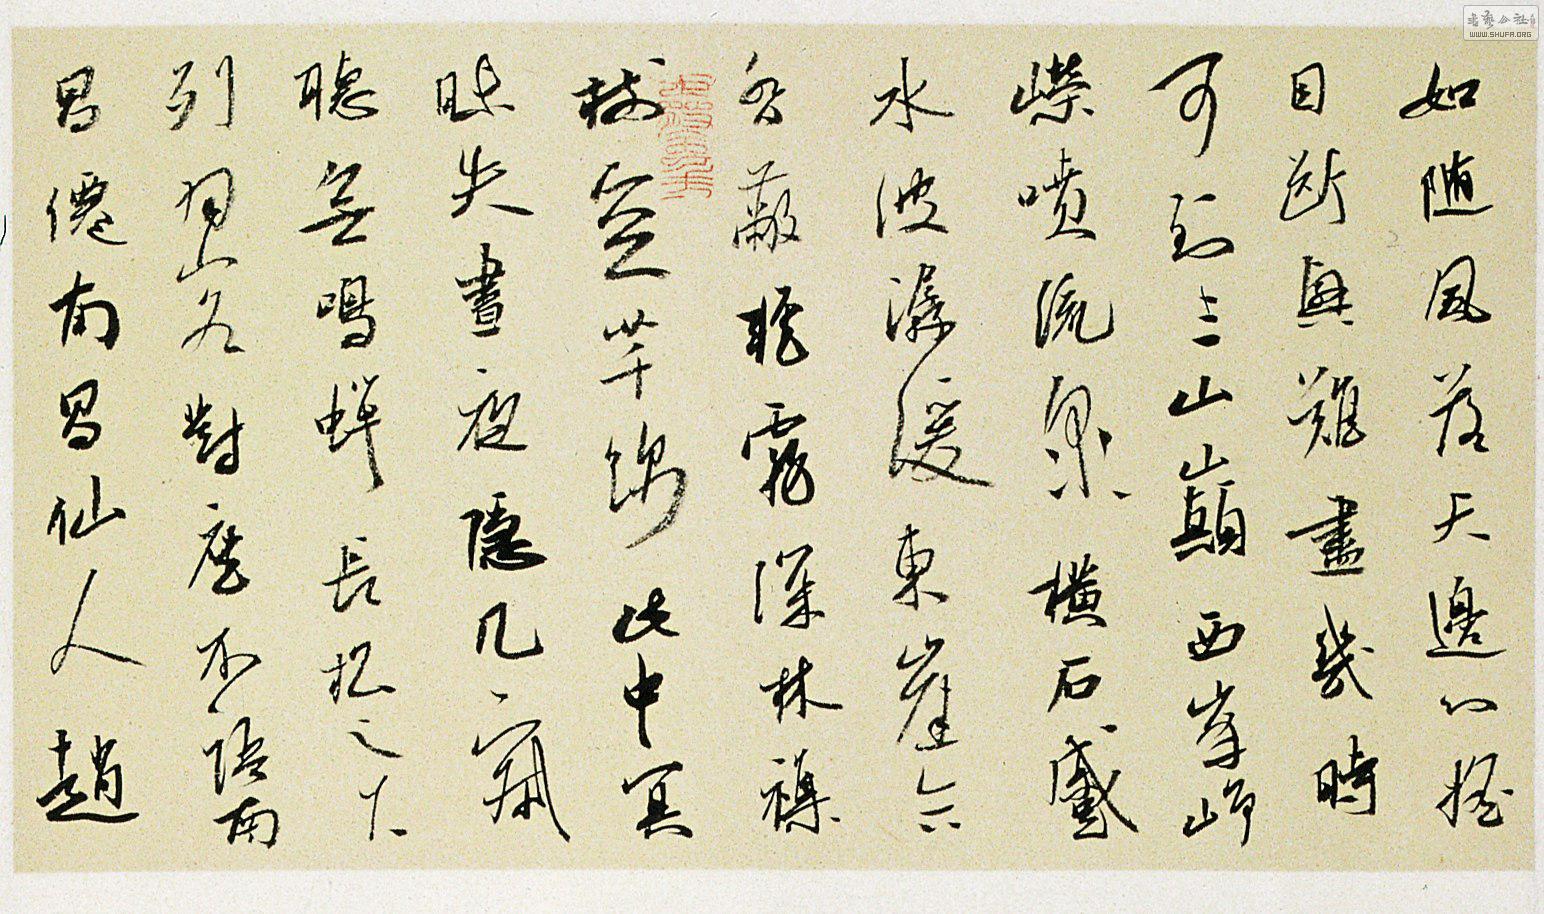 如随風落天邊心摇
目斷興難盡幾時
可到三山巔西峯崢
嶸噴流泉橫石蹙
水波潺湲東崖合
沓蔽輕霧深林襍
樹空芊綿此中冥
昧失晝夜隱几寂
聽無鳴蟬長松之下
列羽客對座不語南
昌僊南昌仙人趙
書藝公社
WWW.SHUFA.ORG